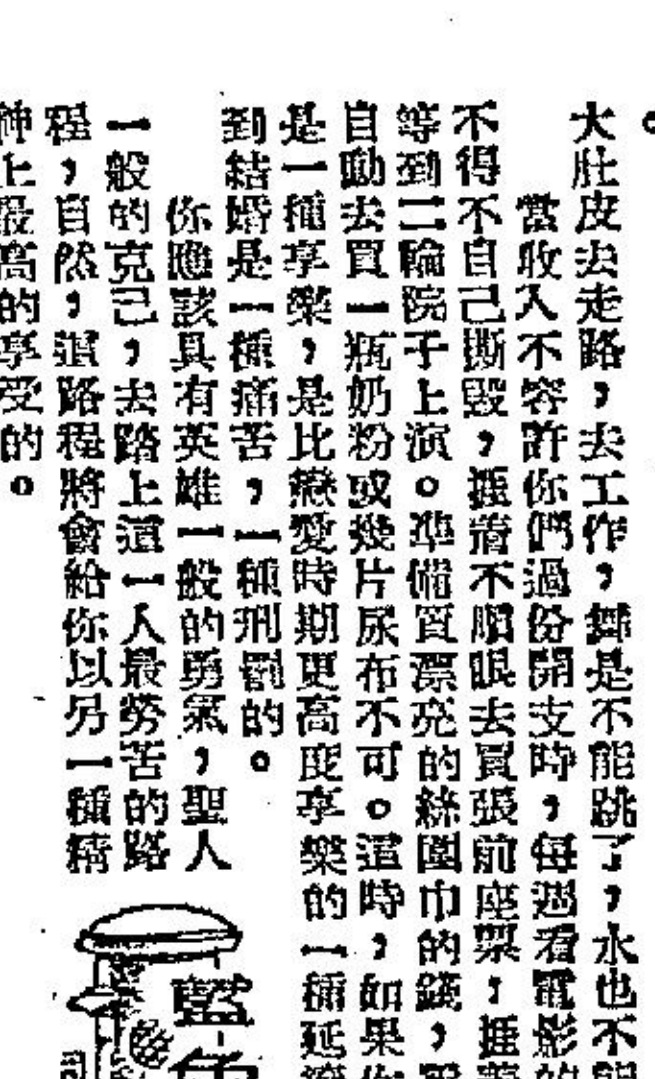 。
大肚皮去走路，去工作，舞是不能跳了，水也不能
當收入不容許你們過份開支時，每週看電影的
不得不自己撕毀，捱着不順眼去買張前座票，捱
等到二輪院子上演。準備買漂亮的絲圍巾的錢，
自動去買一瓶奶粉或幾片尿布不可。這時，如果你
是一種享樂，是比戀愛時期更高度享樂的一種延
到結婚是一種痛苦，一種刑罰的。
你應該具有英雄一般的勇氣，聖人
一般的克己，去踏上這一人最勞苦的路
程，自然，這路程將會給你以另一種精
神上最高的享受的。
藍